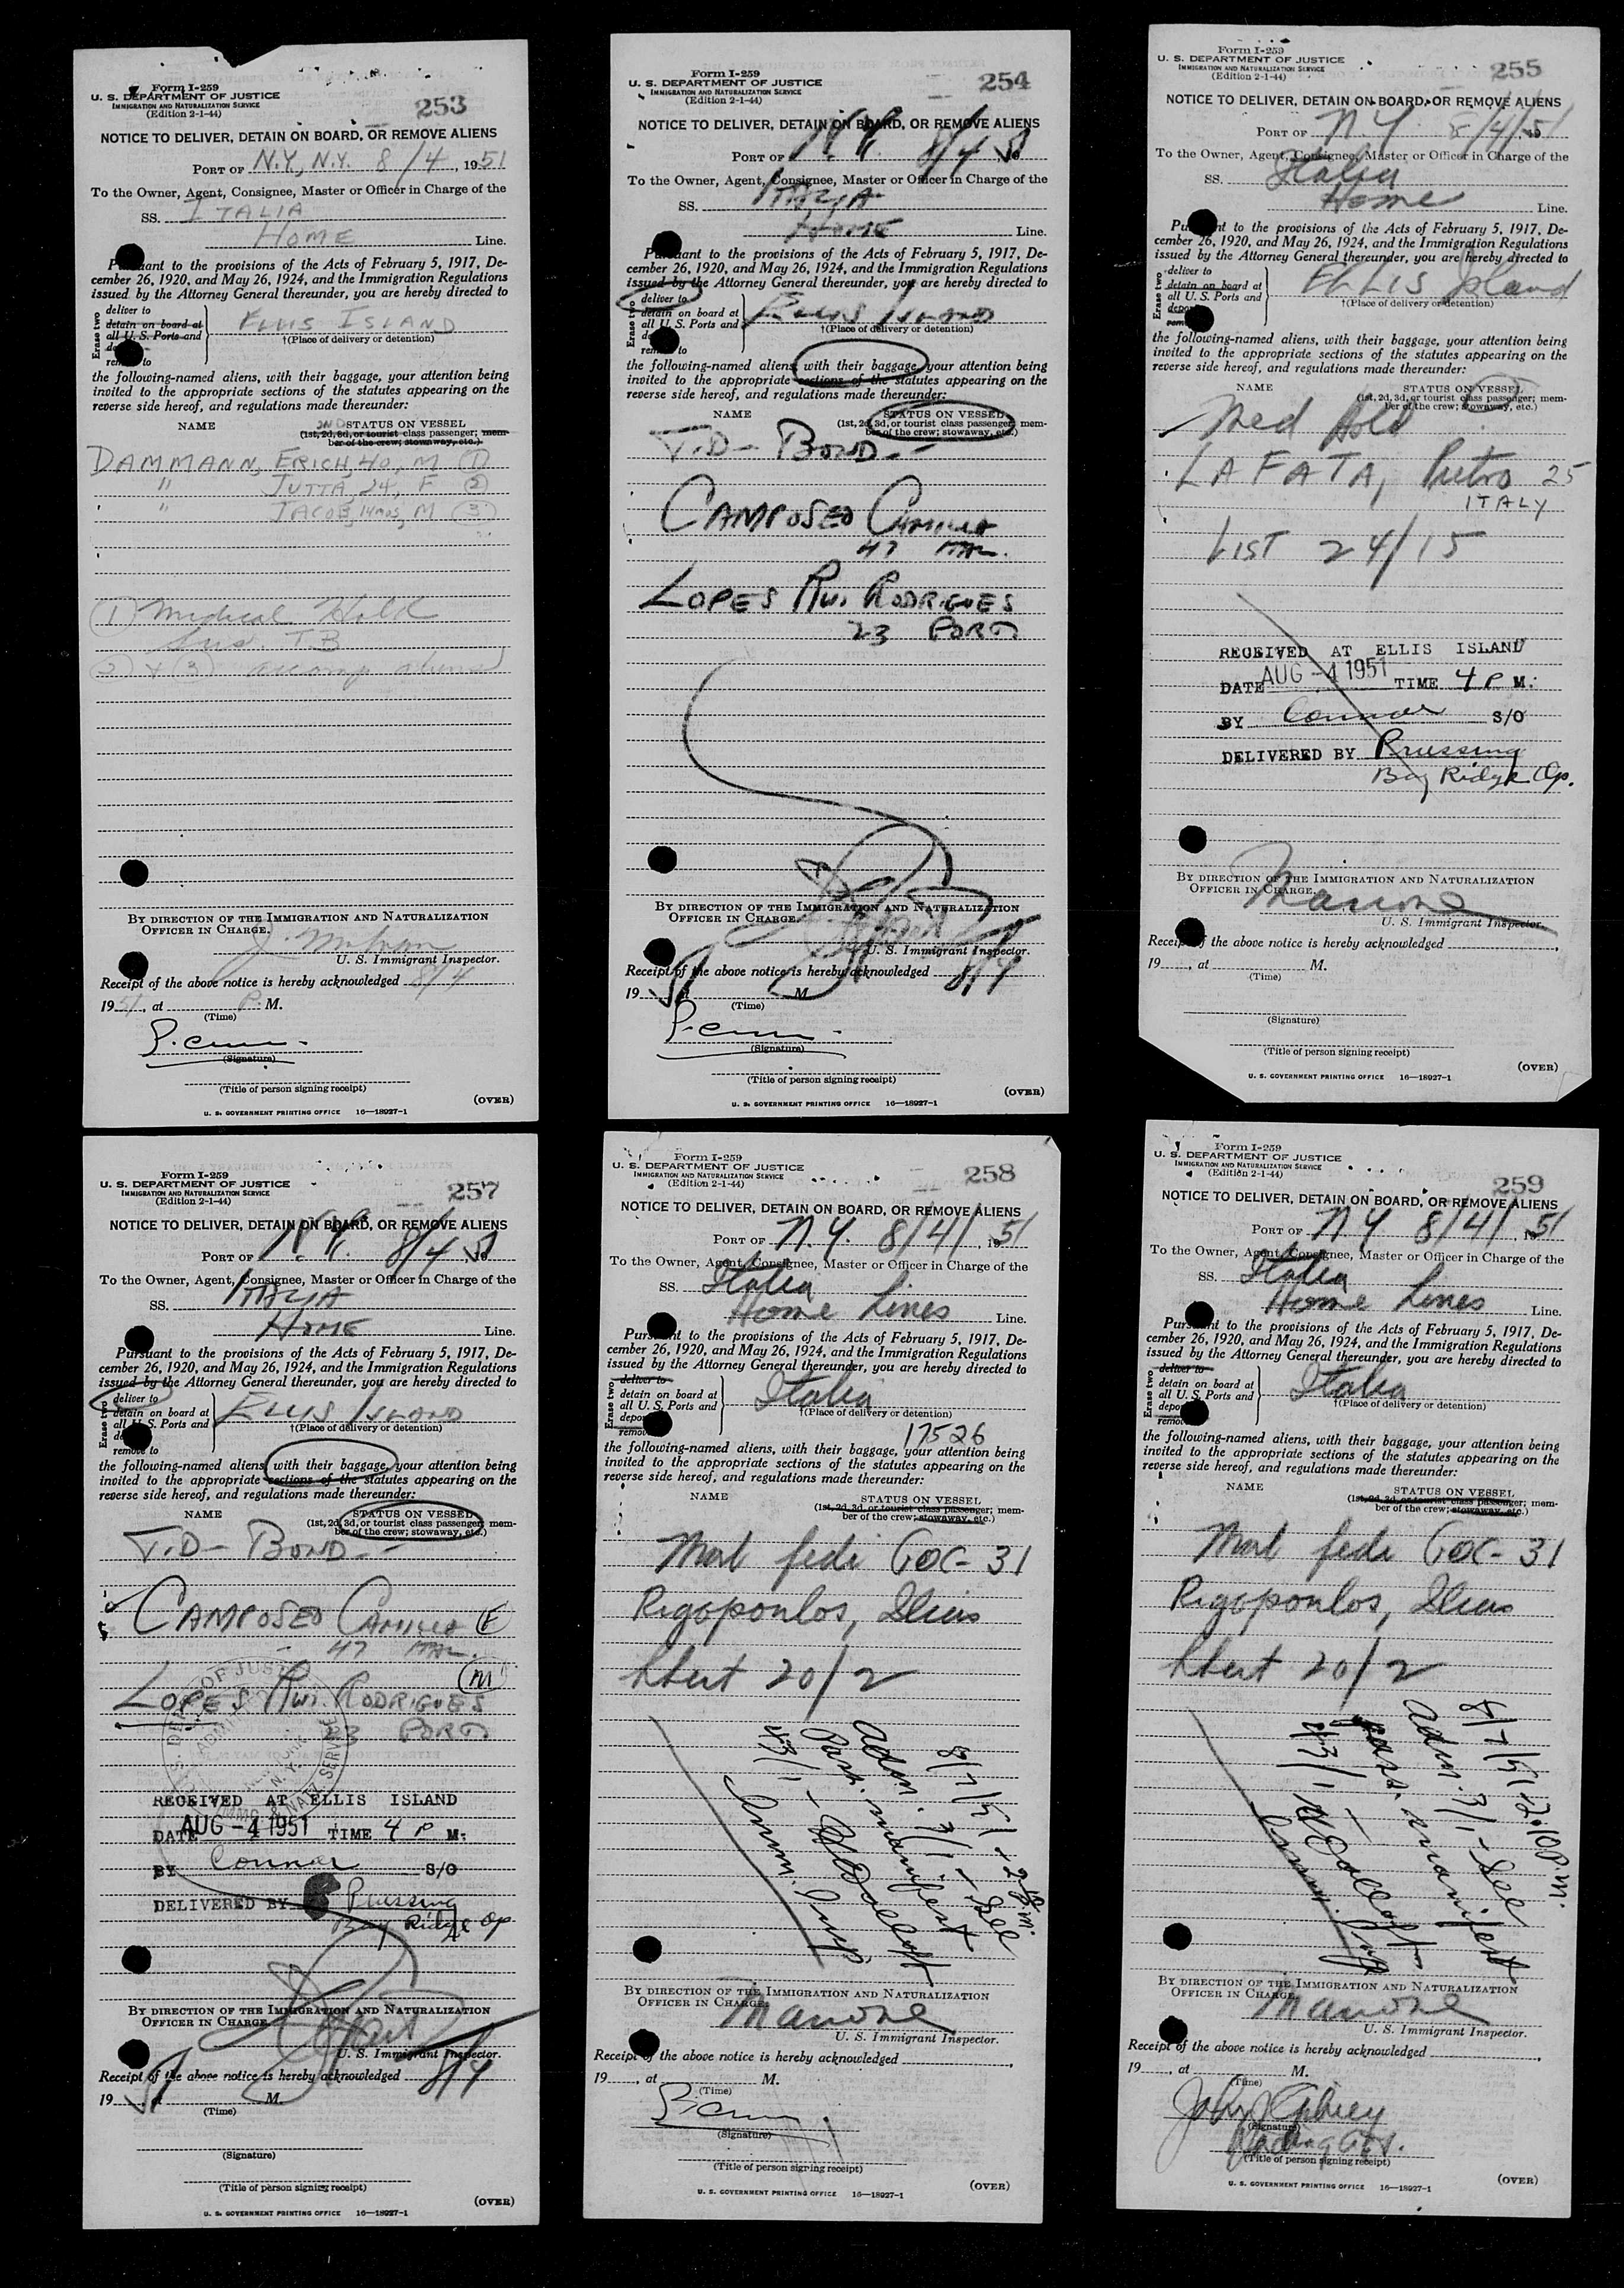 Form I-259
U. S. DEPARTMENT OF JUSTICE
IMMIGRATION AND NATURALIZATION SERVICE
(Edition 2-1-44)
253
NOTICE TO DELIVER, DETAIN ON BOARD, OR REMOVE ALIENS
PORT OF N.Y., N.Y. 8/4, 1951
To the Owner, Agent, Consignee, Master or Officer in Charge of the
SS. ITALIA
HOME Line.
Pursuant to the provisions of the Acts of February 5, 1917, De-
cember 26, 1920, and May 26, 1924, and the Immigration Regulations
issued by the Attorney General thereunder, you are hereby directed to
Erase two
deliver to
detain on board at
all U. S. Ports and
remove to
ELLIS ISLAND
†(Place of delivery or detention)
the following-named aliens, with their baggage, your attention being
invited to the appropriate sections of the statutes appearing on the
reverse side hereof, and regulations made thereunder:
NAME 2ND STATUS ON VESSEL
(1st, 2d, 3d, or tourist class passenger; mem-
ber of the crew; stowaway, etc.)
DAMMANN, ERICH, 40, M (1)
" JUTTA, 24, F (2)
" JACOB, 14mos, M (3)
(1) Medical Hold
Sus. T.B
(2) & (3) accomp aliens
BY DIRECTION OF THE IMMIGRATION AND NATURALIZATION
OFFICER IN CHARGE.
U. S. Immigrant Inspector.
Receipt of the above notice is hereby acknowledged 8/4
1951, at P. M.
(Time)
(Signature)
(Title of person signing receipt)
(OVER)
U. S. GOVERNMENT PRINTING OFFICE 16—18927-1
Form I-259
U. S. DEPARTMENT OF JUSTICE
IMMIGRATION AND NATURALIZATION SERVICE
(Edition 2-1-44)
254
NOTICE TO DELIVER, DETAIN ON BOARD, OR REMOVE ALIENS
PORT OF N.Y. 8/4 51
To the Owner, Agent, Consignee, Master or Officer in Charge of the
SS. ITALIA
HOME Line.
Pursuant to the provisions of the Acts of February 5, 1917, De-
cember 26, 1920, and May 26, 1924, and the Immigration Regulations
issued by the Attorney General thereunder, you are hereby directed to
Erase two
deliver to
detain on board at
all U. S. Ports and
remove to
ELLIS ISLAND
†(Place of delivery or detention)
the following-named aliens, with their baggage, your attention being
invited to the appropriate sections of the statutes appearing on the
reverse side hereof, and regulations made thereunder:
NAME STATUS ON VESSEL
(1st, 2d, 3d, or tourist class passenger; mem-
ber of the crew; stowaway, etc.)
T.D - BOND -
CAMPOSEO CAMILLA
47 ITAL.
LOPES RUI RODRIGUES
23 PORT
BY DIRECTION OF THE IMMIGRATION AND NATURALIZATION
OFFICER IN CHARGE.
U. S. Immigrant Inspector.
Receipt of the above notice is hereby acknowledged 8/4
1951, at M.
(Time)
(Signature)
(Title of person signing receipt)
(OVER)
U. S. GOVERNMENT PRINTING OFFICE 16—18927-1
Form I-259
U. S. DEPARTMENT OF JUSTICE
IMMIGRATION AND NATURALIZATION SERVICE
(Edition 2-1-44)
255
NOTICE TO DELIVER, DETAIN ON BOARD, OR REMOVE ALIENS
PORT OF N.Y. 8/4/51
To the Owner, Agent, Consignee, Master or Officer in Charge of the
SS. Italia
Home Line.
Pursuant to the provisions of the Acts of February 5, 1917, De-
cember 26, 1920, and May 26, 1924, and the Immigration Regulations
issued by the Attorney General thereunder, you are hereby directed to
Erase two
deliver to
detain on board at
all U. S. Ports and
Ellis Island
†(Place of delivery or detention)
the following-named aliens, with their baggage, your attention being
invited to the appropriate sections of the statutes appearing on the
reverse side hereof, and regulations made thereunder:
NAME STATUS ON VESSEL
(1st, 2d, 3d, or tourist class passenger; mem-
ber of the crew; stowaway, etc.)
Med Hold
LA FATA, Pietro 25
ITALY
LIST 24/15
RECEIVED AT ELLIS ISLAND
DATE AUG -4 1951 TIME 4 P M.
BY Connor S/O
DELIVERED BY Pruessing
Bay Ridge Op.
BY DIRECTION OF THE IMMIGRATION AND NATURALIZATION
OFFICER IN CHARGE.
U. S. Immigrant Inspector.
Receipt of the above notice is hereby acknowledged
19 , at M.
(Time)
(Signature)
(Title of person signing receipt)
(OVER)
U. S. GOVERNMENT PRINTING OFFICE 16—18927-1
Form I-259
U. S. DEPARTMENT OF JUSTICE
IMMIGRATION AND NATURALIZATION SERVICE
(Edition 2-1-44)
257
NOTICE TO DELIVER, DETAIN ON BOARD, OR REMOVE ALIENS
PORT OF N.Y. 8/4 51
To the Owner, Agent, Consignee, Master or Officer in Charge of the
SS. ITALIA
HOME Line.
Pursuant to the provisions of the Acts of February 5, 1917, De-
cember 26, 1920, and May 26, 1924, and the Immigration Regulations
issued by the Attorney General thereunder, you are hereby directed to
Erase two
deliver to
detain on board at
all U. S. Ports and
remove to
ELLIS ISLAND
†(Place of delivery or detention)
the following-named aliens, with their baggage, your attention being
invited to the appropriate sections of the statutes appearing on the
reverse side hereof, and regulations made thereunder:
NAME STATUS ON VESSEL
(1st, 2d, 3d, or tourist class passenger; mem-
ber of the crew; stowaway, etc.)
T.D - BOND -
CAMPOSEO CAMILLA (F)
47 ITAL.
(M)
LOPES RUI RODRIGUES
23 PORT
RECEIVED AT ELLIS ISLAND
DATE AUG -4 1951 TIME 4 P M.
BY Connor S/O
DELIVERED BY Pruessing
Bay Ridge Op.
BY DIRECTION OF THE IMMIGRATION AND NATURALIZATION
OFFICER IN CHARGE.
U. S. Immigrant Inspector.
Receipt of the above notice is hereby acknowledged 8/4
1951, at M.
(Time)
(Signature)
(Title of person signing receipt)
(OVER)
U. S. GOVERNMENT PRINTING OFFICE 16—18927-1
Form I-259
U. S. DEPARTMENT OF JUSTICE
IMMIGRATION AND NATURALIZATION SERVICE
(Edition 2-1-44)
258
NOTICE TO DELIVER, DETAIN ON BOARD, OR REMOVE ALIENS
PORT OF N.Y. 8/4/, 1951
To the Owner, Agent, Consignee, Master or Officer in Charge of the
SS. Italia
Home Lines Line.
Pursuant to the provisions of the Acts of February 5, 1917, De-
cember 26, 1920, and May 26, 1924, and the Immigration Regulations
issued by the Attorney General thereunder, you are hereby directed to
Erase two
deliver to
detain on board at
all U. S. Ports and
Italia
†(Place of delivery or detention)
17526
the following-named aliens, with their baggage, your attention being
invited to the appropriate sections of the statutes appearing on the
reverse side hereof, and regulations made thereunder:
NAME STATUS ON VESSEL
(1st, 2d, 3d, or tourist class passenger; mem-
ber of the crew; stowaway, etc.)
Mal fide GOC-31
Rigopoulos,
20/2
8/7/51
Adm. 3/1 - See
Pass. manifest
Imm. Insp
BY DIRECTION OF THE IMMIGRATION AND NATURALIZATION
OFFICER IN CHARGE.
U. S. Immigrant Inspector.
Receipt of the above notice is hereby acknowledged
19 , at M.
(Time)
(Signature)
(Title of person signing receipt)
(OVER)
U. S. GOVERNMENT PRINTING OFFICE 16—18927-1
Form I-259
U. S. DEPARTMENT OF JUSTICE
IMMIGRATION AND NATURALIZATION SERVICE
(Edition 2-1-44)
259
NOTICE TO DELIVER, DETAIN ON BOARD, OR REMOVE ALIENS
PORT OF N.Y. 8/4/, 1951
To the Owner, Agent, Consignee, Master or Officer in Charge of the
SS. Italia
Home Lines Line.
Pursuant to the provisions of the Acts of February 5, 1917, De-
cember 26, 1920, and May 26, 1924, and the Immigration Regulations
issued by the Attorney General thereunder, you are hereby directed to
Erase two
deliver to
detain on board at
all U. S. Ports and
Italia
†(Place of delivery or detention)
the following-named aliens, with their baggage, your attention being
invited to the appropriate sections of the statutes appearing on the
reverse side hereof, and regulations made thereunder:
NAME STATUS ON VESSEL
(1st, 2d, 3d, or tourist class passenger; mem-
ber of the crew; stowaway, etc.)
Mal fide GOC-31
Rigopoulos,
20/2
8/7/51 12:10 P.M.
Adm. 3/1 - See
Pass. manifest
Imm. Insp
BY DIRECTION OF THE IMMIGRATION AND NATURALIZATION
OFFICER IN CHARGE.
U. S. Immigrant Inspector.
Receipt of the above notice is hereby acknowledged
19 , at M.
(Time)
John
(Signature)
(Title of person signing receipt)
(OVER)
U. S. GOVERNMENT PRINTING OFFICE 16—18927-1